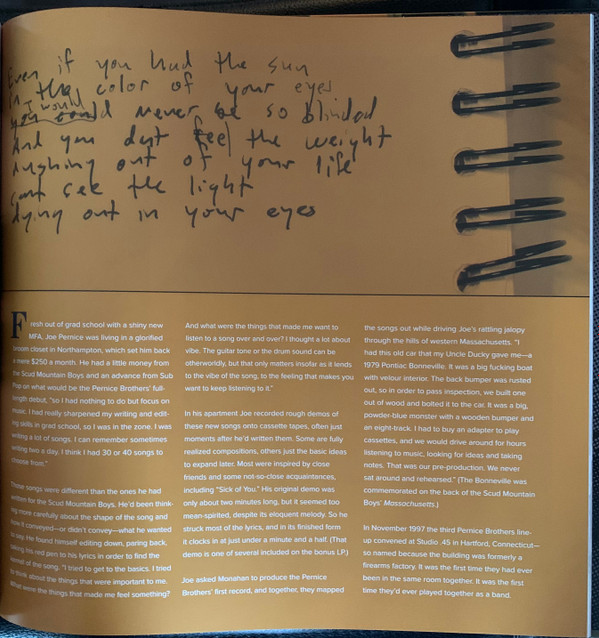 Even if you had the sun
in the color of your eyes
I would
you could never be so blinded
And you dont feel the weight
out of your life
cant see the light
dying out in your eyes
Fresh out of grad school with a shiny new
MFA, Joe Pernice was living in a glorified
broom closet in Northampton, which set him back
a mere $250 a month. He had a little money from
the Scud Mountain Boys and an advance from Sub
Pop on what would be the Pernice Brothers' full-
length debut, "so I had nothing to do but focus on
music. I had really sharpened my writing and edit-
ing skills in grad school, so I was in the zone. I was
writing a lot of songs. I can remember sometimes
writing two a day. I think I had 30 or 40 songs to
choose from."
These songs were different than the ones he had
written for the Scud Mountain Boys. He'd been think-
ing more carefully about the shape of the song and
how it conveyed—or didn't convey—what he wanted
to say. He found himself editing down, paring back,
taking his red pen to his lyrics in order to find the
kernel of the song. "I tried to get to the basics. I tried
to think about the things that were important to me.
What were the things that made me feel something?
And what were the things that made me want to
listen to a song over and over? I thought a lot about
vibe. The guitar tone or the drum sound can be
otherworldly, but that only matters insofar as it lends
to the vibe of the song, to the feeling that makes you
want to keep listening to it."
In his apartment Joe recorded rough demos of
these new songs onto cassette tapes, often just
moments after he'd written them. Some are fully
realized compositions, others just the basic ideas
to expand later. Most were inspired by close
friends and some not-so-close acquaintances,
including "Sick of You." His original demo was
only about two minutes long, but it seemed too
mean-spirited, despite its eloquent melody. So he
struck most of the lyrics, and in its finished form
it clocks in at just under a minute and a half. (That
demo is one of several included on the bonus LP.)
Joe asked Monahan to produce the Pernice
Brothers' first record, and together, they mapped
the songs out while driving Joe's rattling jalopy
through the hills of western Massachusetts. "I
had this old car that my Uncle Ducky gave me—a
1979 Pontiac Bonneville. It was a big fucking boat
with velour interior. The back bumper was rusted
out, so in order to pass inspection, we built one
out of wood and bolted it to the car. It was a big,
powder-blue monster with a wooden bumper and
an eight-track. I had to buy an adapter to play
cassettes, and we would drive around for hours
listening to music, looking for ideas and taking
notes. That was our pre-production. We never
sat around and rehearsed." (The Bonneville was
commemorated on the back of the Scud Mountain
Boys' Massachusetts.)
In November 1997 the third Pernice Brothers line-
up convened at Studio .45 in Hartford, Connecticut—
so named because the building was formerly a
firearms factory. It was the first time they had ever
been in the same room together. It was the first
time they'd ever played together as a band.